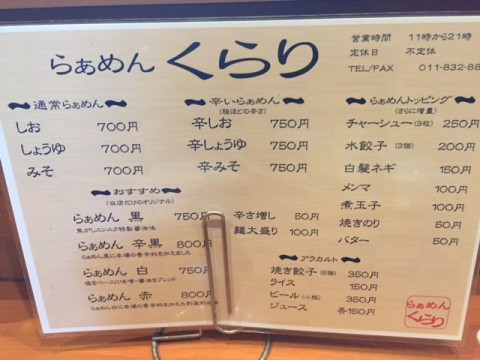 らぁめん くらり
営業時間 11時から21時
定休日 不定休
TEL/FAX 011-832-88
通常らぁめん
しお 700円
しょうゆ 700円
みそ 700円
辛いらぁめん
(程ほどの辛さ)
辛しお 750円
辛しょうゆ 750円
辛みそ 750円
らぁめんトッピング
(さらに増量)
チャーシュー(3枚) 250円
水餃子(3個) 200円
白髪ネギ 150円
メンマ 100円
煮玉子 100円
焼きのり 50円
バター 50円
おすすめ
(当店だけのオリジナル)
らぁめん 黒 750
焦がしニンニク特製醤油味
らぁめん 辛黒 800
らぁめん黒に本場の香辛料を加えました
らぁめん 白 750
塩をベースに味噌・醤油をブレンド
らぁめん 赤 800
らぁめん白に本場の香辛料を加えた
辛さ増し 50円
麺大盛り 100円
アラカルト
焼き餃子(6個) 350円
ライス 150円
ビール(小瓶) 350円
ジュース 各150円
らぁめん
くらり